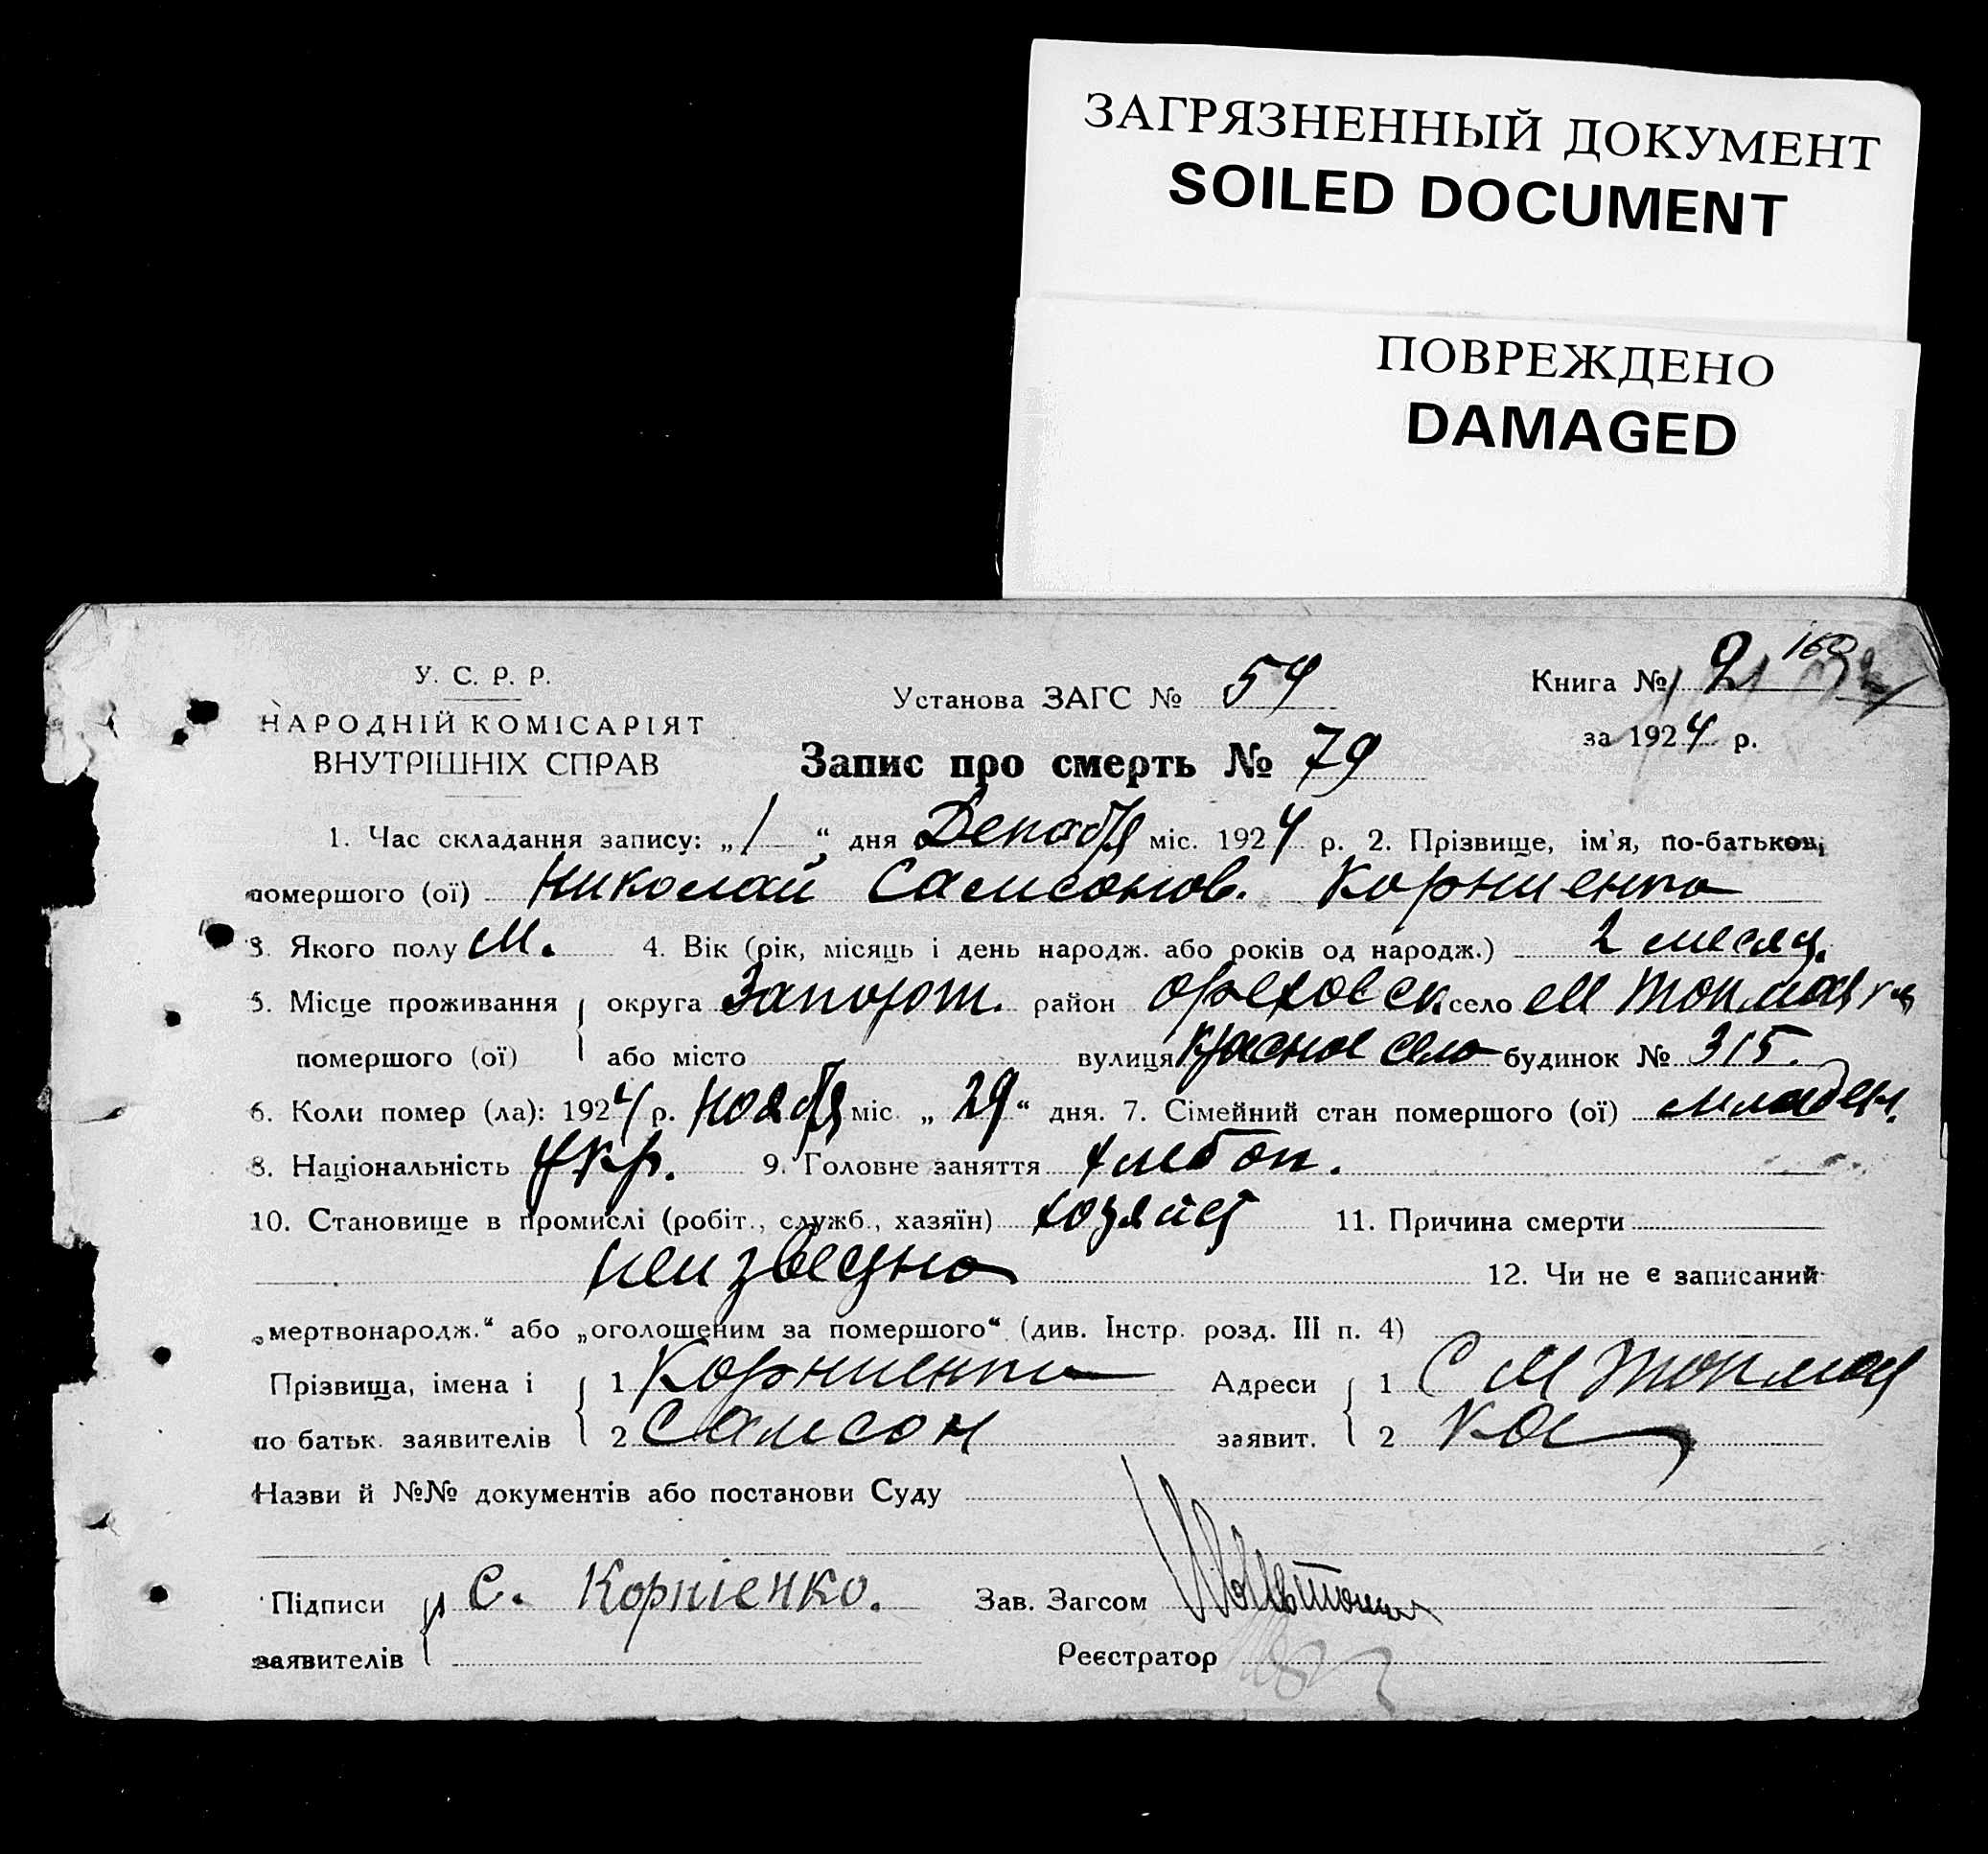 ЗАГРЯЗНЕННЫЙ ДОКУМЕНТ
SOILED DOCUMENT
ПОВРЕЖДЕНО
DAMAGED
160
У. С. Р. Р.
Установа ЗАГС № 54
Книга № 2
НАРОДНІЙ КОМІСАРІЯТ
за 1924 р.
ВНУТРІШНІХ СПРАВ
Запис про смерть № 79
1. Час складання запису: „1“ дня Декабря міс. 1924 р. 2. Прізвище, ім'я, по-батькові
помершого (ої) Николай Самсонов. Корниенко
3. Якого полу М. 4. Вік (рік, місяць і день народж. або років од народж.) 2 месяц.
5. Місце проживання округа Запорож. район Ореховск. село М Токмачка
помершого (ої) або місто вулиця Красное село будинок № 315.
6. Коли помер (ла): 1924 р. Ноября міс. „29“ дня. 7. Сімейний стан помершого (ої) младен.
8. Національність Укр. 9. Головне заняття хлебоп.
10. Становище в промислі (робіт., служб., хазяїн) хозяйст 11. Причина смерти
неизвестно 12. Чи не є записаний
„мертвонародж.“ або „оголошеним за помершого“ (див. Інстр. розд. III п. 4)
Прізвища, імена і 1 Корниенко Адреси 1 С М Токмач
по батьк. заявителів 2 Самсон заявит. 2 ка
Назви й №№ документів або постанови Суду
Підписи С. Корніенко. Зав. Загсом
заявителів Реєстратор